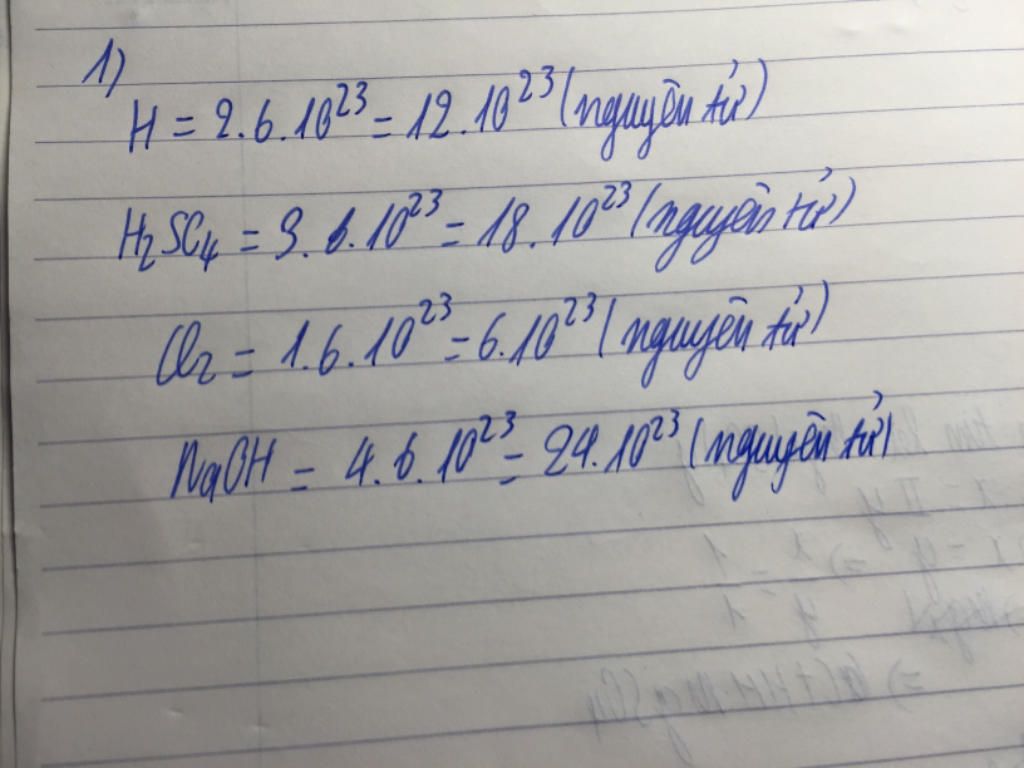 1)
H = 2.6.10²³ = 12.10²³ (nguyên tử)
H₂SO₄ = 3.6.10²³ = 18.10²³ (nguyên tử)
Cl₂ = 1.6.10²³ = 6.10²³ (nguyên tử)
NaOH = 4.6.10²³ = 24.10²³ (nguyên tử)